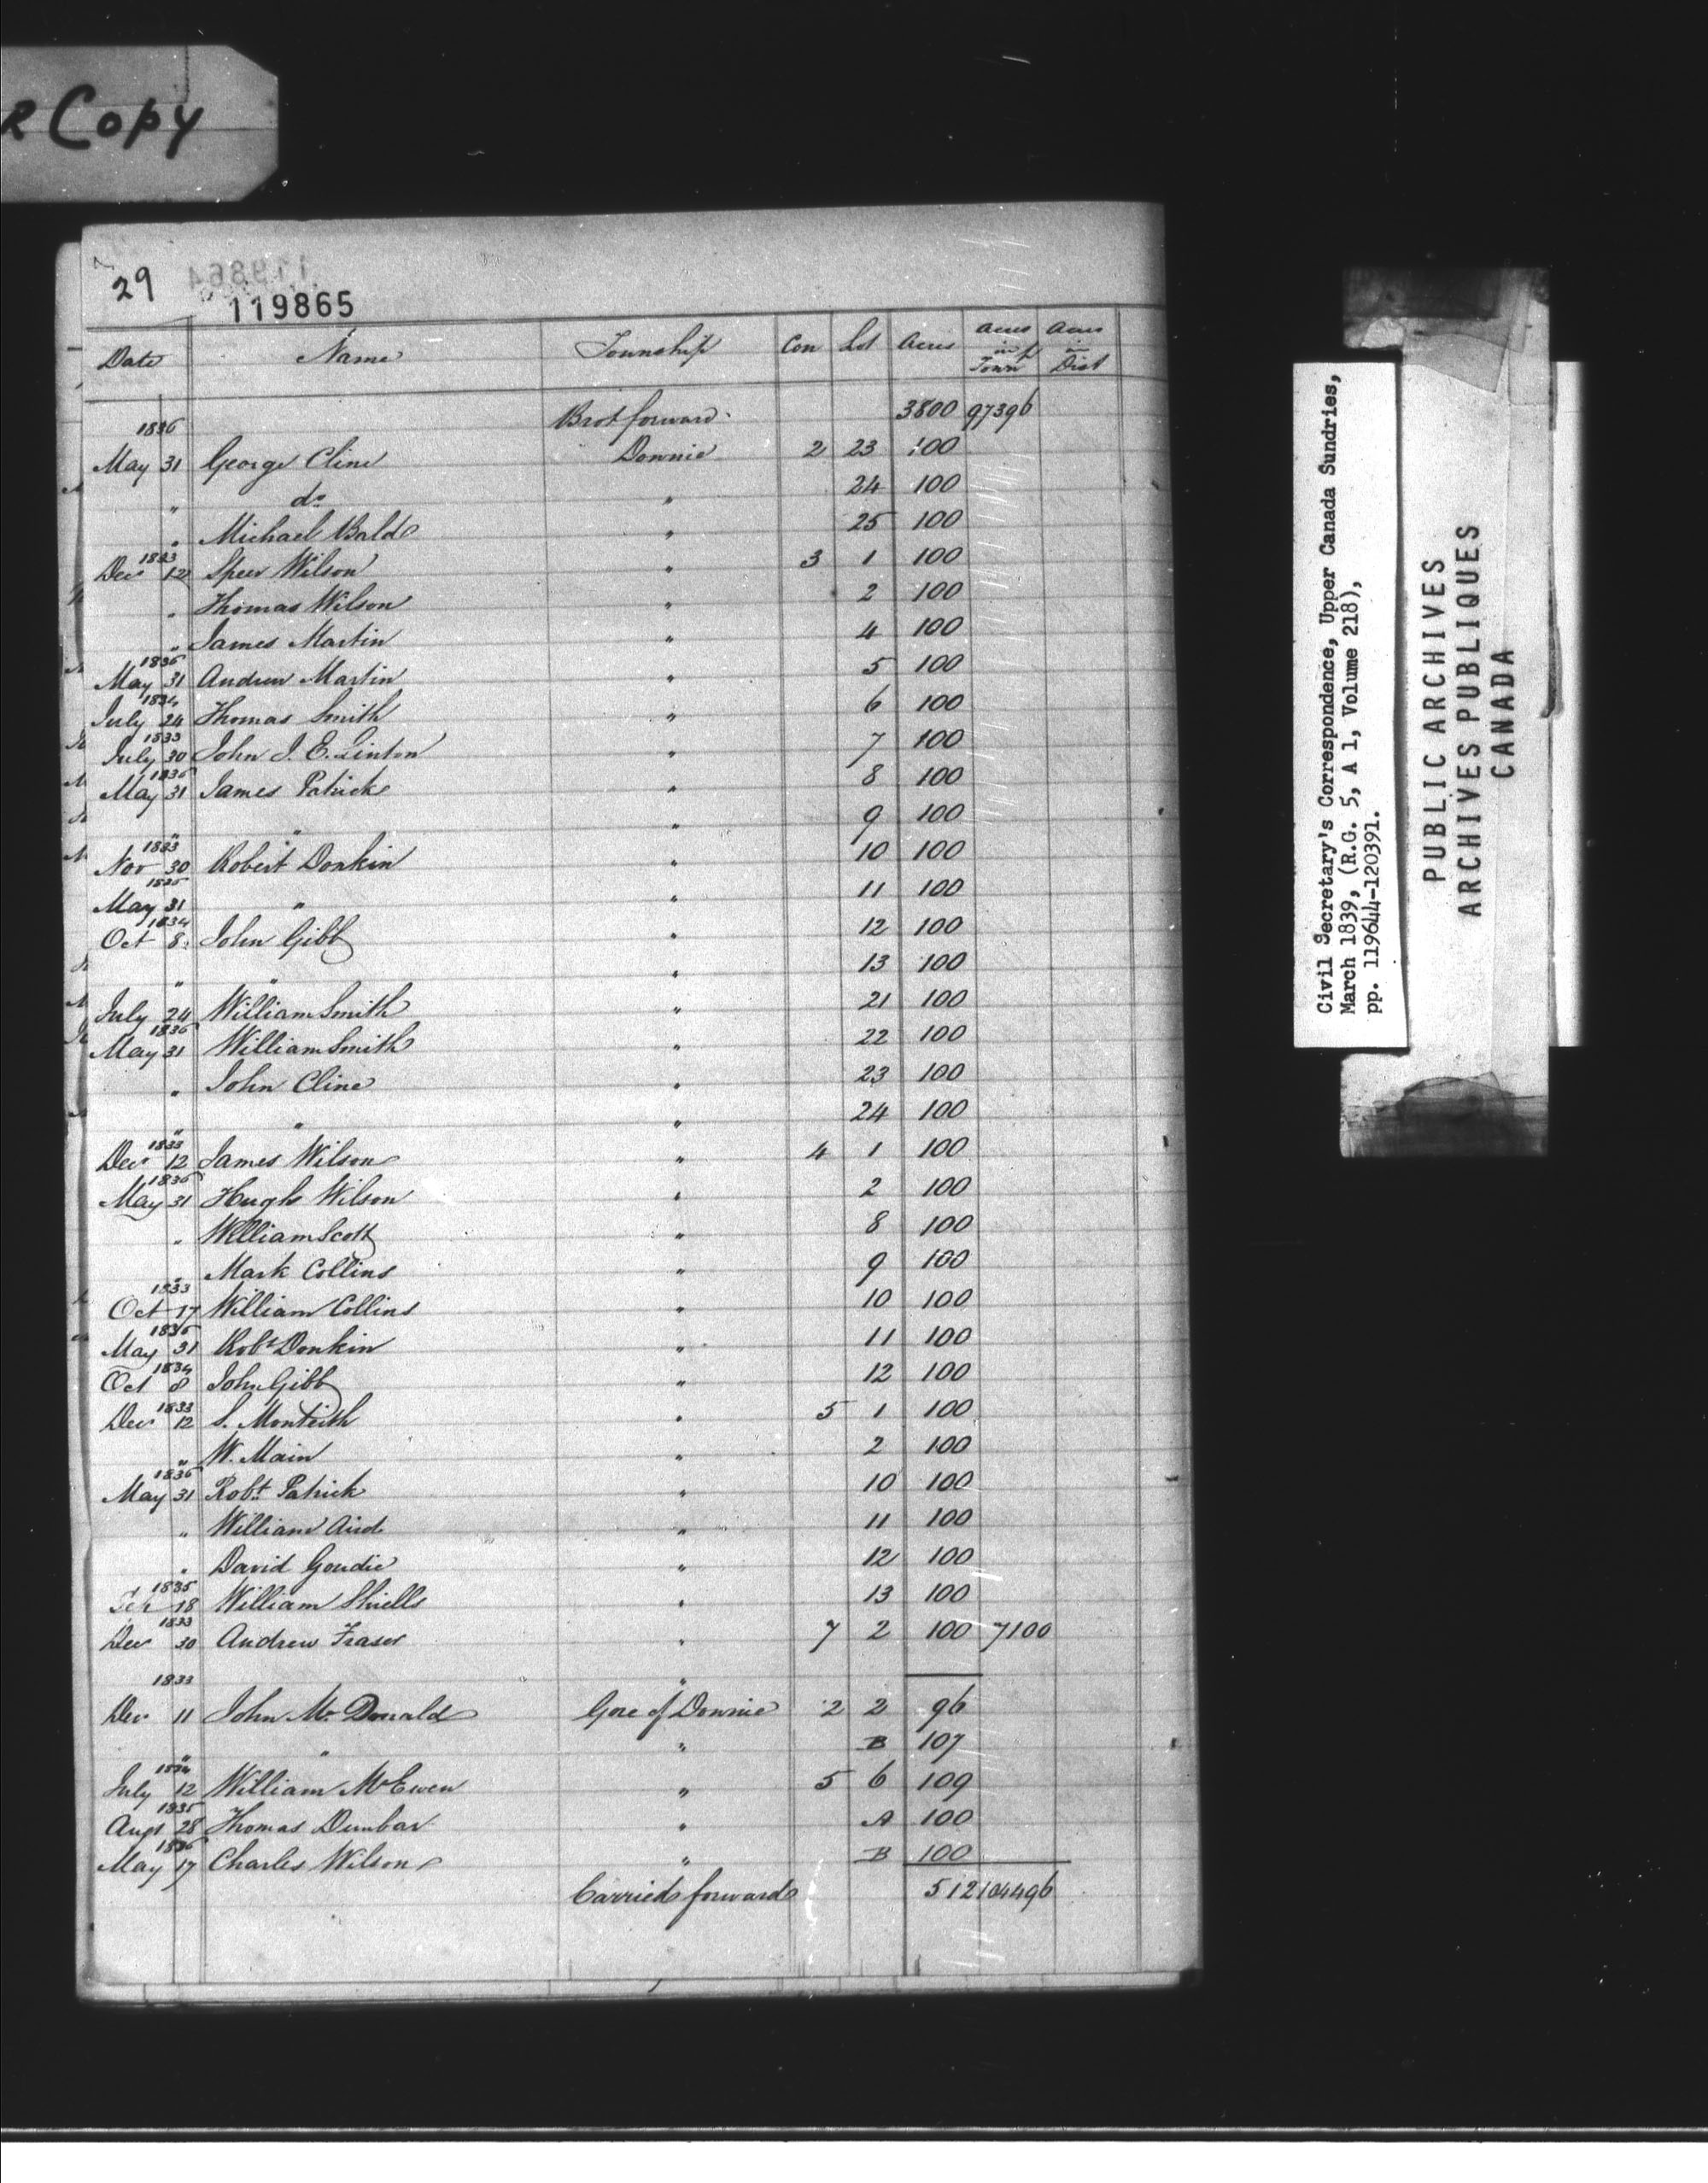 R Copy
29
119864
119865
Date Name Township Con Lot Acres Acres in Townp Acres in Dist
Brot forward 3800 97396
1836
May 31 George Cline Downie 2 23 100
" do " 24 100
" Michael Bald " 25 100
1833
Decr 12 Speer Wilson " 3 1 100
" Thomas Wilson " 2 100
" James Martin " 4 100
1836
May 31 Andrew Martin " 5 100
1834
July 24 Thomas Smith " 6 100
1833
July 30 John J. E. Linton " 7 100
1836
May 31 James Patrick " 8 100
" " " 9 100
1833
Nov 30 Robert Donkin " 10 100
May 31 " " 11 100
1834
Oct 8 John Gibb " 12 100
" " " 13 100
July 24 William Smith " 21 100
1836
May 31 William Smith " 22 100
" John Cline " 23 100
" " " 24 100
1833
Decr 12 James Wilson " 4 1 100
1836
May 31 Hugh Wilson " 2 100
" William Scott " 8 100
" Mark Collins " 9 100
1833
Oct 17 William Collins " 10 100
1836
May 31 Robt Donkin " 11 100
1834
Oct 8 John Gibb " 12 100
1833
Decr 12 S. Monteith " 5 1 100
" W. Main " 2 100
1836
May 31 Robt Patrick " 10 100
" William Aird " 11 100
" David Goudie " 12 100
1835
18 William Shiells " 13 100
1833
Decr 30 Andrew Fraser " 7 2 100 7100
"
1833
Decr 11 John McDonald Gore of Downie 2 2 96
" " " B 107
1834
July 12 William McEwen " 5 6 109
1835
Augt 28 Thomas Dunbar " A 100
1836
May 17 Charles Wilson " B 100
Carried forward 512 104496
Civil Secretary's Correspondence, Upper Canada Sundries,
March 1839, (R.G. 5, A 1, Volume 218),
pp. 119644-120391.
PUBLIC ARCHIVES
ARCHIVES PUBLIQUES
CANADA